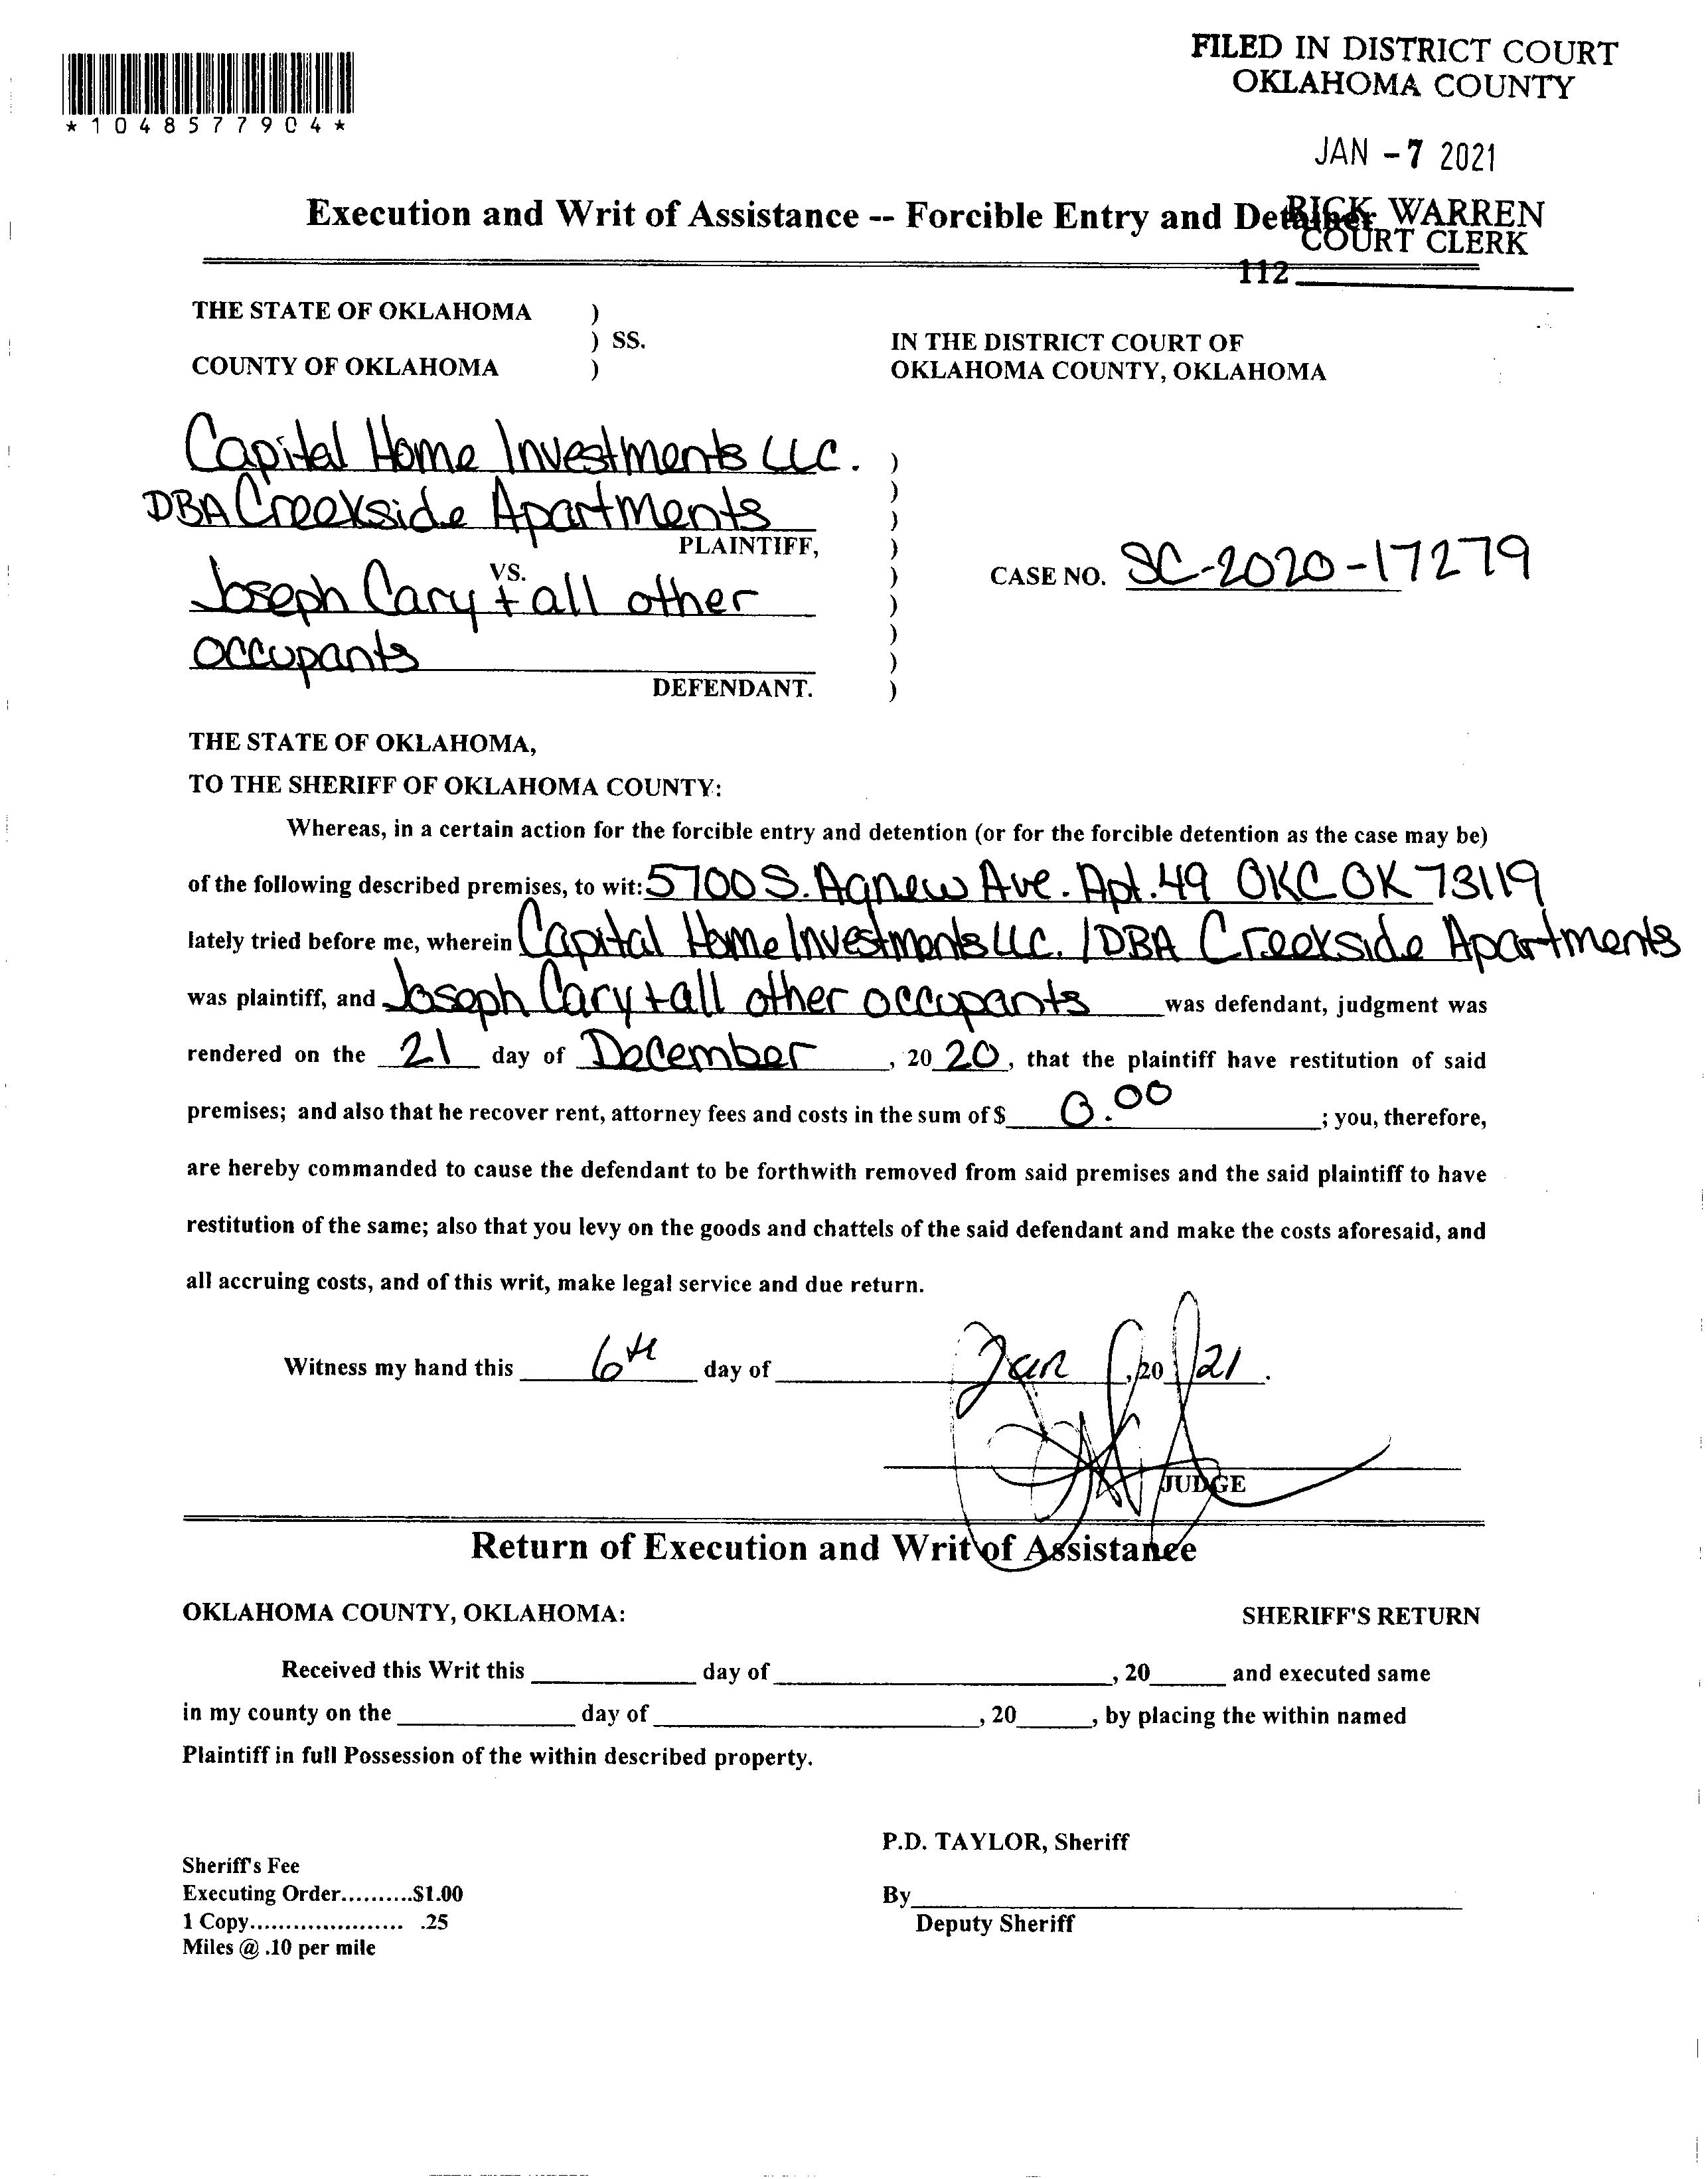 *1048577904*
FILED IN DISTRICT COURT
OKLAHOMA COUNTY
JAN -7 2021
RICK WARREN
COURT CLERK
112
Execution and Writ of Assistance -- Forcible Entry and Detainer
THE STATE OF OKLAHOMA )
) SS.
COUNTY OF OKLAHOMA )
IN THE DISTRICT COURT OF
OKLAHOMA COUNTY, OKLAHOMA
Capital Home Investments LLC. )
DBA Creekside Apartments )
PLAINTIFF, )
VS. )
CASE NO. SC-2020-17279
Joseph Cary + all other )
occupants )
DEFENDANT. )
THE STATE OF OKLAHOMA,
TO THE SHERIFF OF OKLAHOMA COUNTY:
Whereas, in a certain action for the forcible entry and detention (or for the forcible detention as the case may be)
of the following described premises, to wit: 5700 S. Agnew Ave. Apt. 49 OKC OK 73119
lately tried before me, wherein Capital Home Investments LLC. / DBA Creekside Apartments
was plaintiff, and Joseph Cary + all other occupants was defendant, judgment was
rendered on the 21 day of December, 2020, that the plaintiff have restitution of said
premises; and also that he recover rent, attorney fees and costs in the sum of $ 0.00 ; you, therefore,
are hereby commanded to cause the defendant to be forthwith removed from said premises and the said plaintiff to have
restitution of the same; also that you levy on the goods and chattels of the said defendant and make the costs aforesaid, and
all accruing costs, and of this writ, make legal service and due return.
Witness my hand this 6th day of Jan, 20 21.
JUDGE
Return of Execution and Writ of Assistance
OKLAHOMA COUNTY, OKLAHOMA: SHERIFF'S RETURN
Received this Writ this ____ day of ____, 20____ and executed same
in my county on the ____ day of ____, 20____, by placing the within named
Plaintiff in full Possession of the within described property.
P.D. TAYLOR, Sheriff
Sheriff's Fee
Executing Order..........$1.00
By____
1 Copy..................... .25
Deputy Sheriff
Miles @ .10 per mile